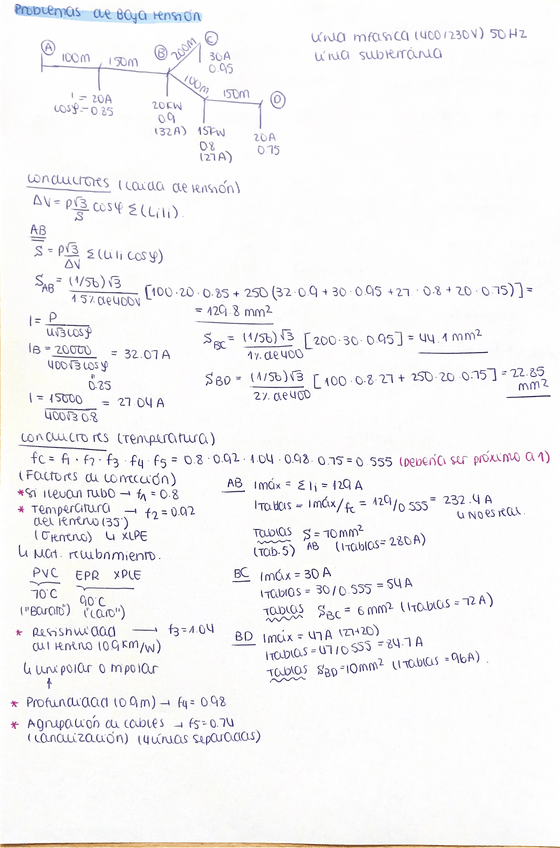 Problemas de Baja tensión
Línea trifásica (400/230V) 50 Hz
Línea subterránea
A 100m 150m B 200m C
30A
0.95
100m 150m D
I = 20A
cosφ = 0.85
20KW
0.9
(32A)
15KW
0.8
(27A)
20A
0.75
Conductores (caída de tensión)
ΔV = ρ√3/S cosφ Σ(Li Ii).
AB
S = ρ√3/ΔV Σ(Li Ii cosφ)
S_AB = (1/56)√3 / 1.5% de 400V [100·20·0.85 + 250(32·0.9 + 30·0.95 + 27·0.8 + 20·0.75)] =
= 129.8 mm²
I = P / U√3cosφ
I_B = 20000 / 400√3 cosφ = 32.07A
0.85
I = 15000 / 400√3 0.8 = 27.04A
S_BC = (1/56)√3 / 1% de 400 [200·30·0.95] = 44.1 mm²
S_BD = (1/56)√3 / 2% de 400 [100·0.8·27 + 250·20·0.75] = 22.85 mm²
Conductores (temperatura)
fc = f1·f2·f3·f4·f5 = 0.8·0.92·1.04·0.98·0.75 = 0.555 (Debería ser próximo a 1)
(Factores de corrección)
* Si llevan tubo → f1 = 0.8
* Temperatura → f2 = 0.92
del terreno (35°)
(θterreno) ↳ XLPE
↳ Mat. recubrimiento.
PVC EPR XPLE
70°C 90°C
("Barato") ("caro")
* Resistividad → f3 = 1.04
del terreno (0.9 K·m/W)
↳ unipolar o tripolar
* Profundidad (0.9m) → f4 = 0.98
* Agrupación de cables → f5 = 0.74
(canalización) (4 líneas separadas)
AB Imáx = Σ Ii = 129A
Itablas = Imáx/fc = 129/0.555 = 232.4A
↳ No es real.
Tablas S_AB = 70mm²
(Tab.5) (Itablas = 280A)
BC Imáx = 30A
Itablas = 30/0.555 = 54A
Tablas S_BC = 6mm² (Itablas = 72A)
BD Imáx = 47A (27+20)
Itablas = 47/0.555 = 84.7A
Tablas S_BD = 10mm² (Itablas = 96A).